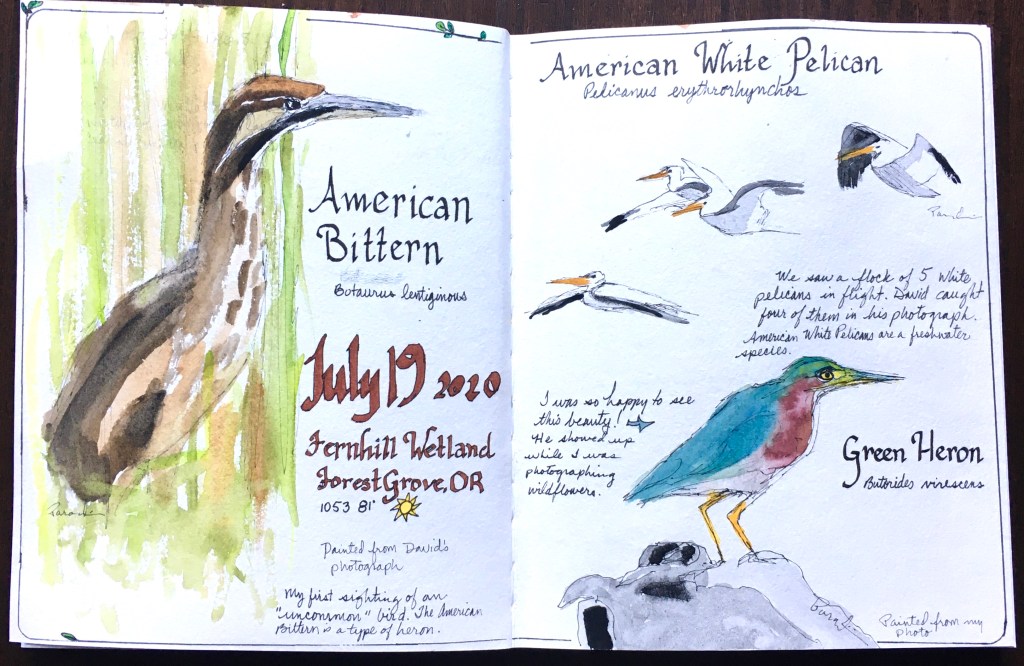 American
Bittern
Botaurus lentiginous
July 19 2020
Fernhill Wetland
Forest Grove, OR
1053 81°
Painted from David's
photograph
My first sighting of an
"uncommon" bird. The American
Bittern is a type of heron.
American White Pelican
Pelicanus erythrorhynchos
We saw a flock of 5 White
pelicans in flight. David caught
four of them in his photograph.
American White Pelicans are a freshwater
species.
I was so happy to see
this beauty.
He showed up
while I was
photographing
wildflowers.
Green Heron
Butorides virescens
Painted from my
photo